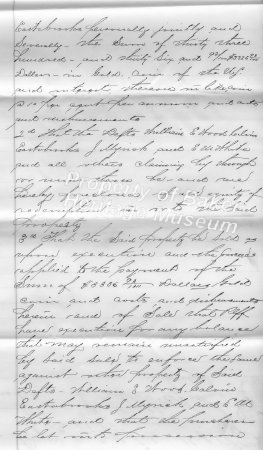 Eastabrooks personally jointly and
Severally the Sum of thirty three
hundred and thirty Six and
Dollars in Gold Coin of the U.S.
and interest thereon in like coin
per cent per annum and costs
and disbursements
2d That the Defts William E Wood Calvin
Eastabrooks J Myrick and E W White
and all others claiming by through
or under them be and are
hereby foreclosed of equity of
redemption in or to the Said
Property
3d That the Said property be Sold as
upon execution and the proceeds
applied to the payment of the
Sum of $3336 Dollars Gold
coin and costs and disbursements
herein and of Sale that Plff
have execution for any balance
that may remain unsatisfied
by Said Sale to enforce the same
against other property of Said
Defts William E Wood Calvin
Eastabrooks J Myrick and E W
White and that the purchaser
be let into possession
Property of
Museum